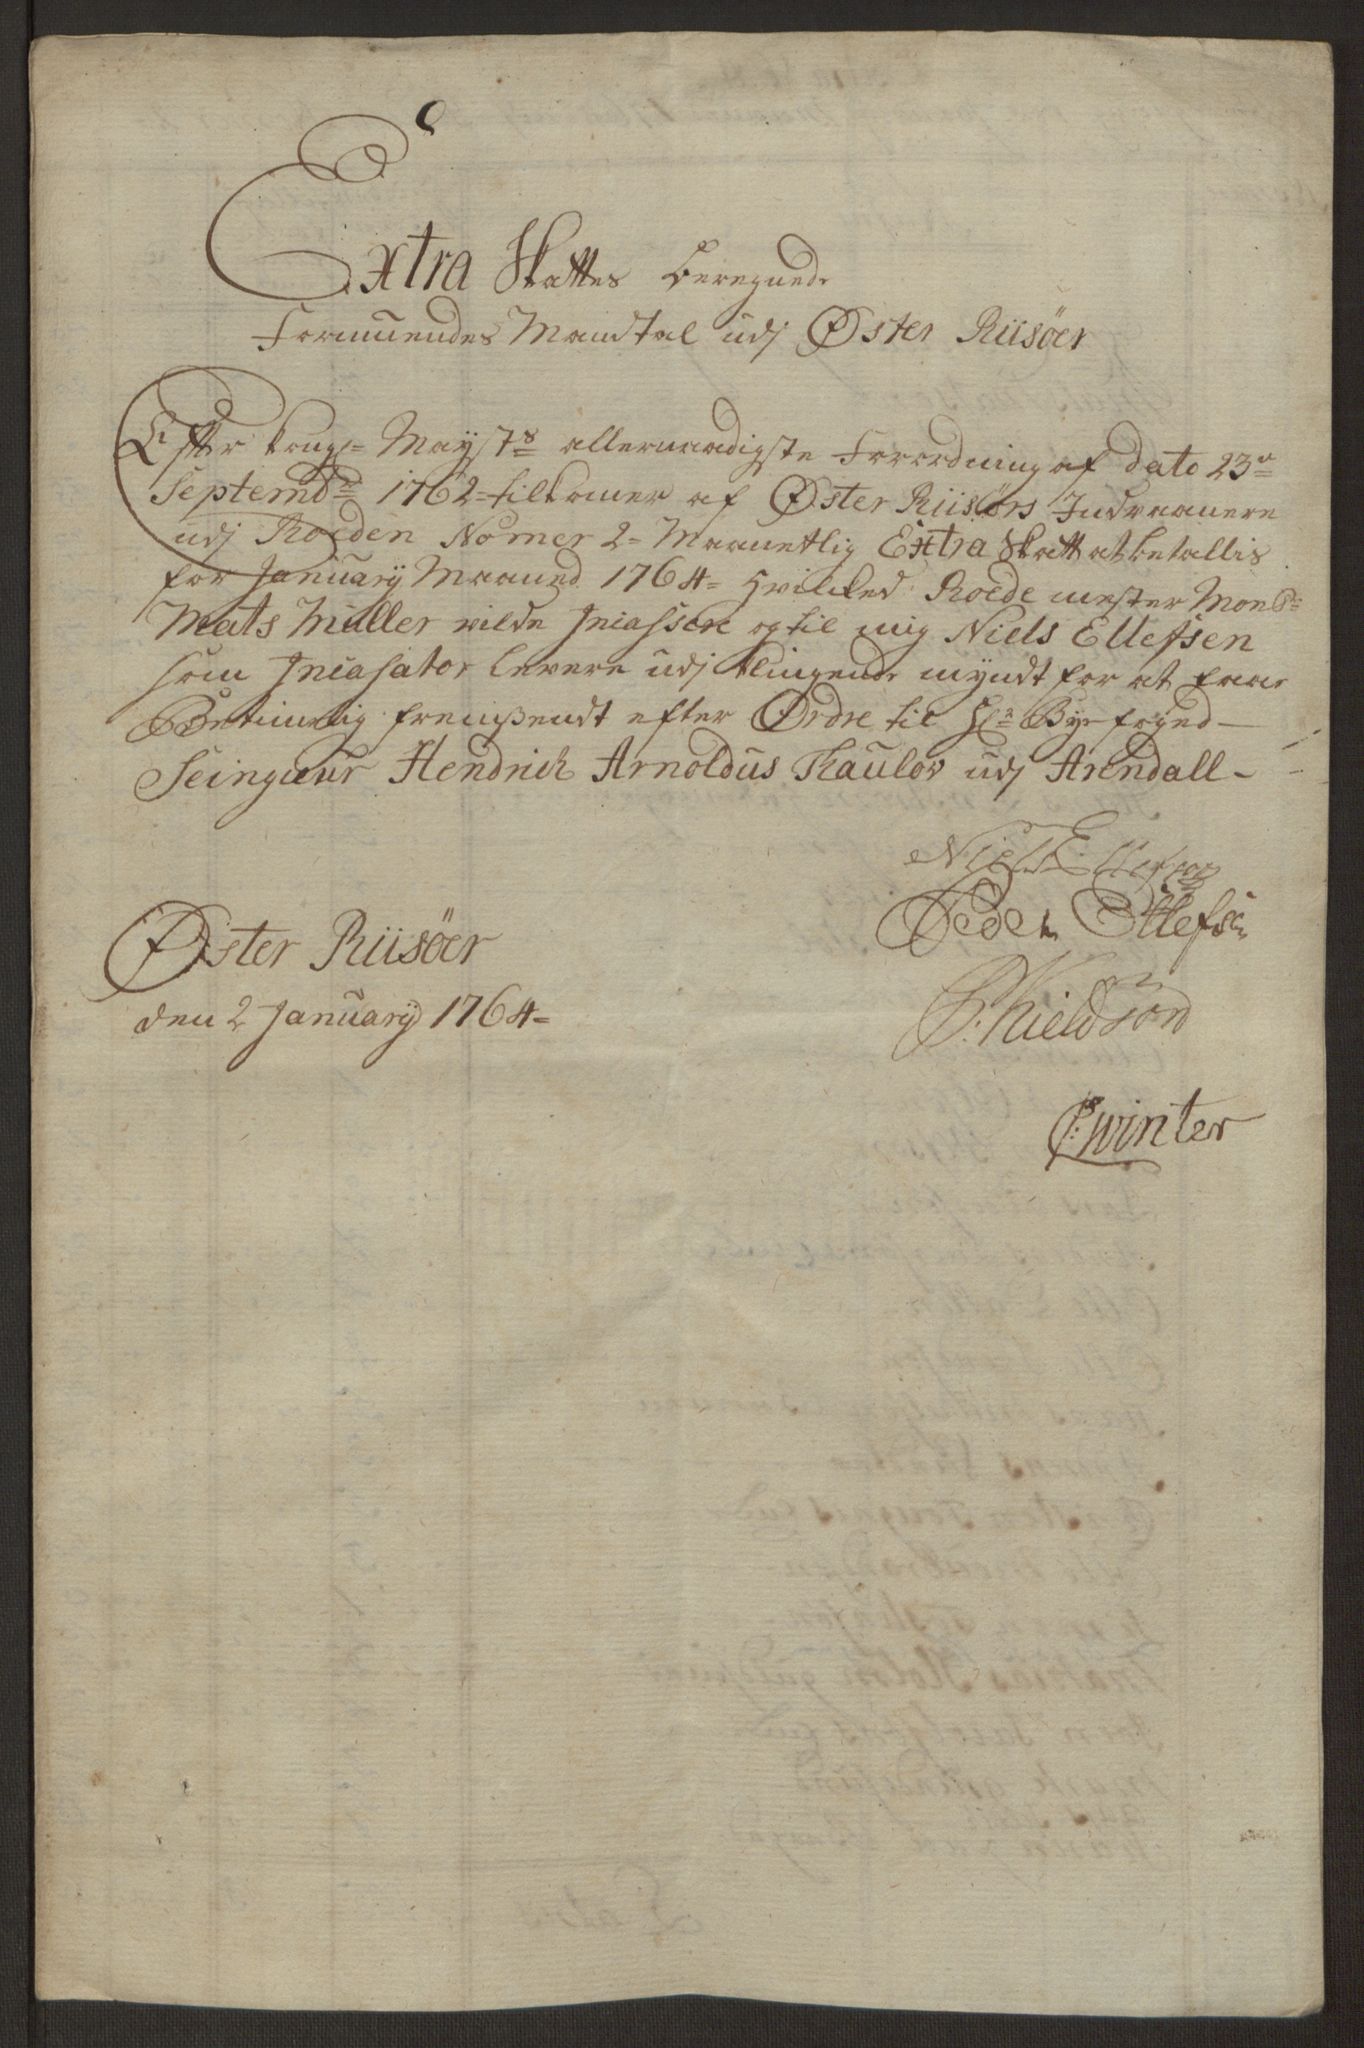 Extra Skattes beregnede
Formuendes Mandtal udj Øster Riisöer
Efter Kongl= Mayst⁸ allernaadigste Forordning af dato 23ⁿ
Septembr 1762 = tilkomer af Øster Riisörs Indvaanere
udj Roeden Nomer 2 = Maanetlig Extra Skatt at betallis
for January Maaned 1764 = hvilked Roede mester Mons:
Mats Müller vilde Incassere og til mig Niels Ellefsen
som Incasator levere udj klingende myndt for at faae
Betimelig fremsendt efter Ordre til Hr Bye foged
Seingieur Hendrich Arnoldus Thaulov udj Arendall -
Niels Ellefsen
Peder Ellefsen
Øster Riisöer
den 2 January 1764 =
P: winter